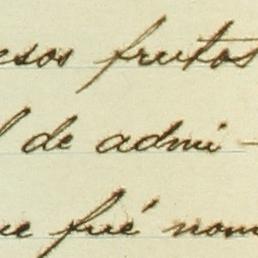 esos frutos
l de admi-
ue fué nom